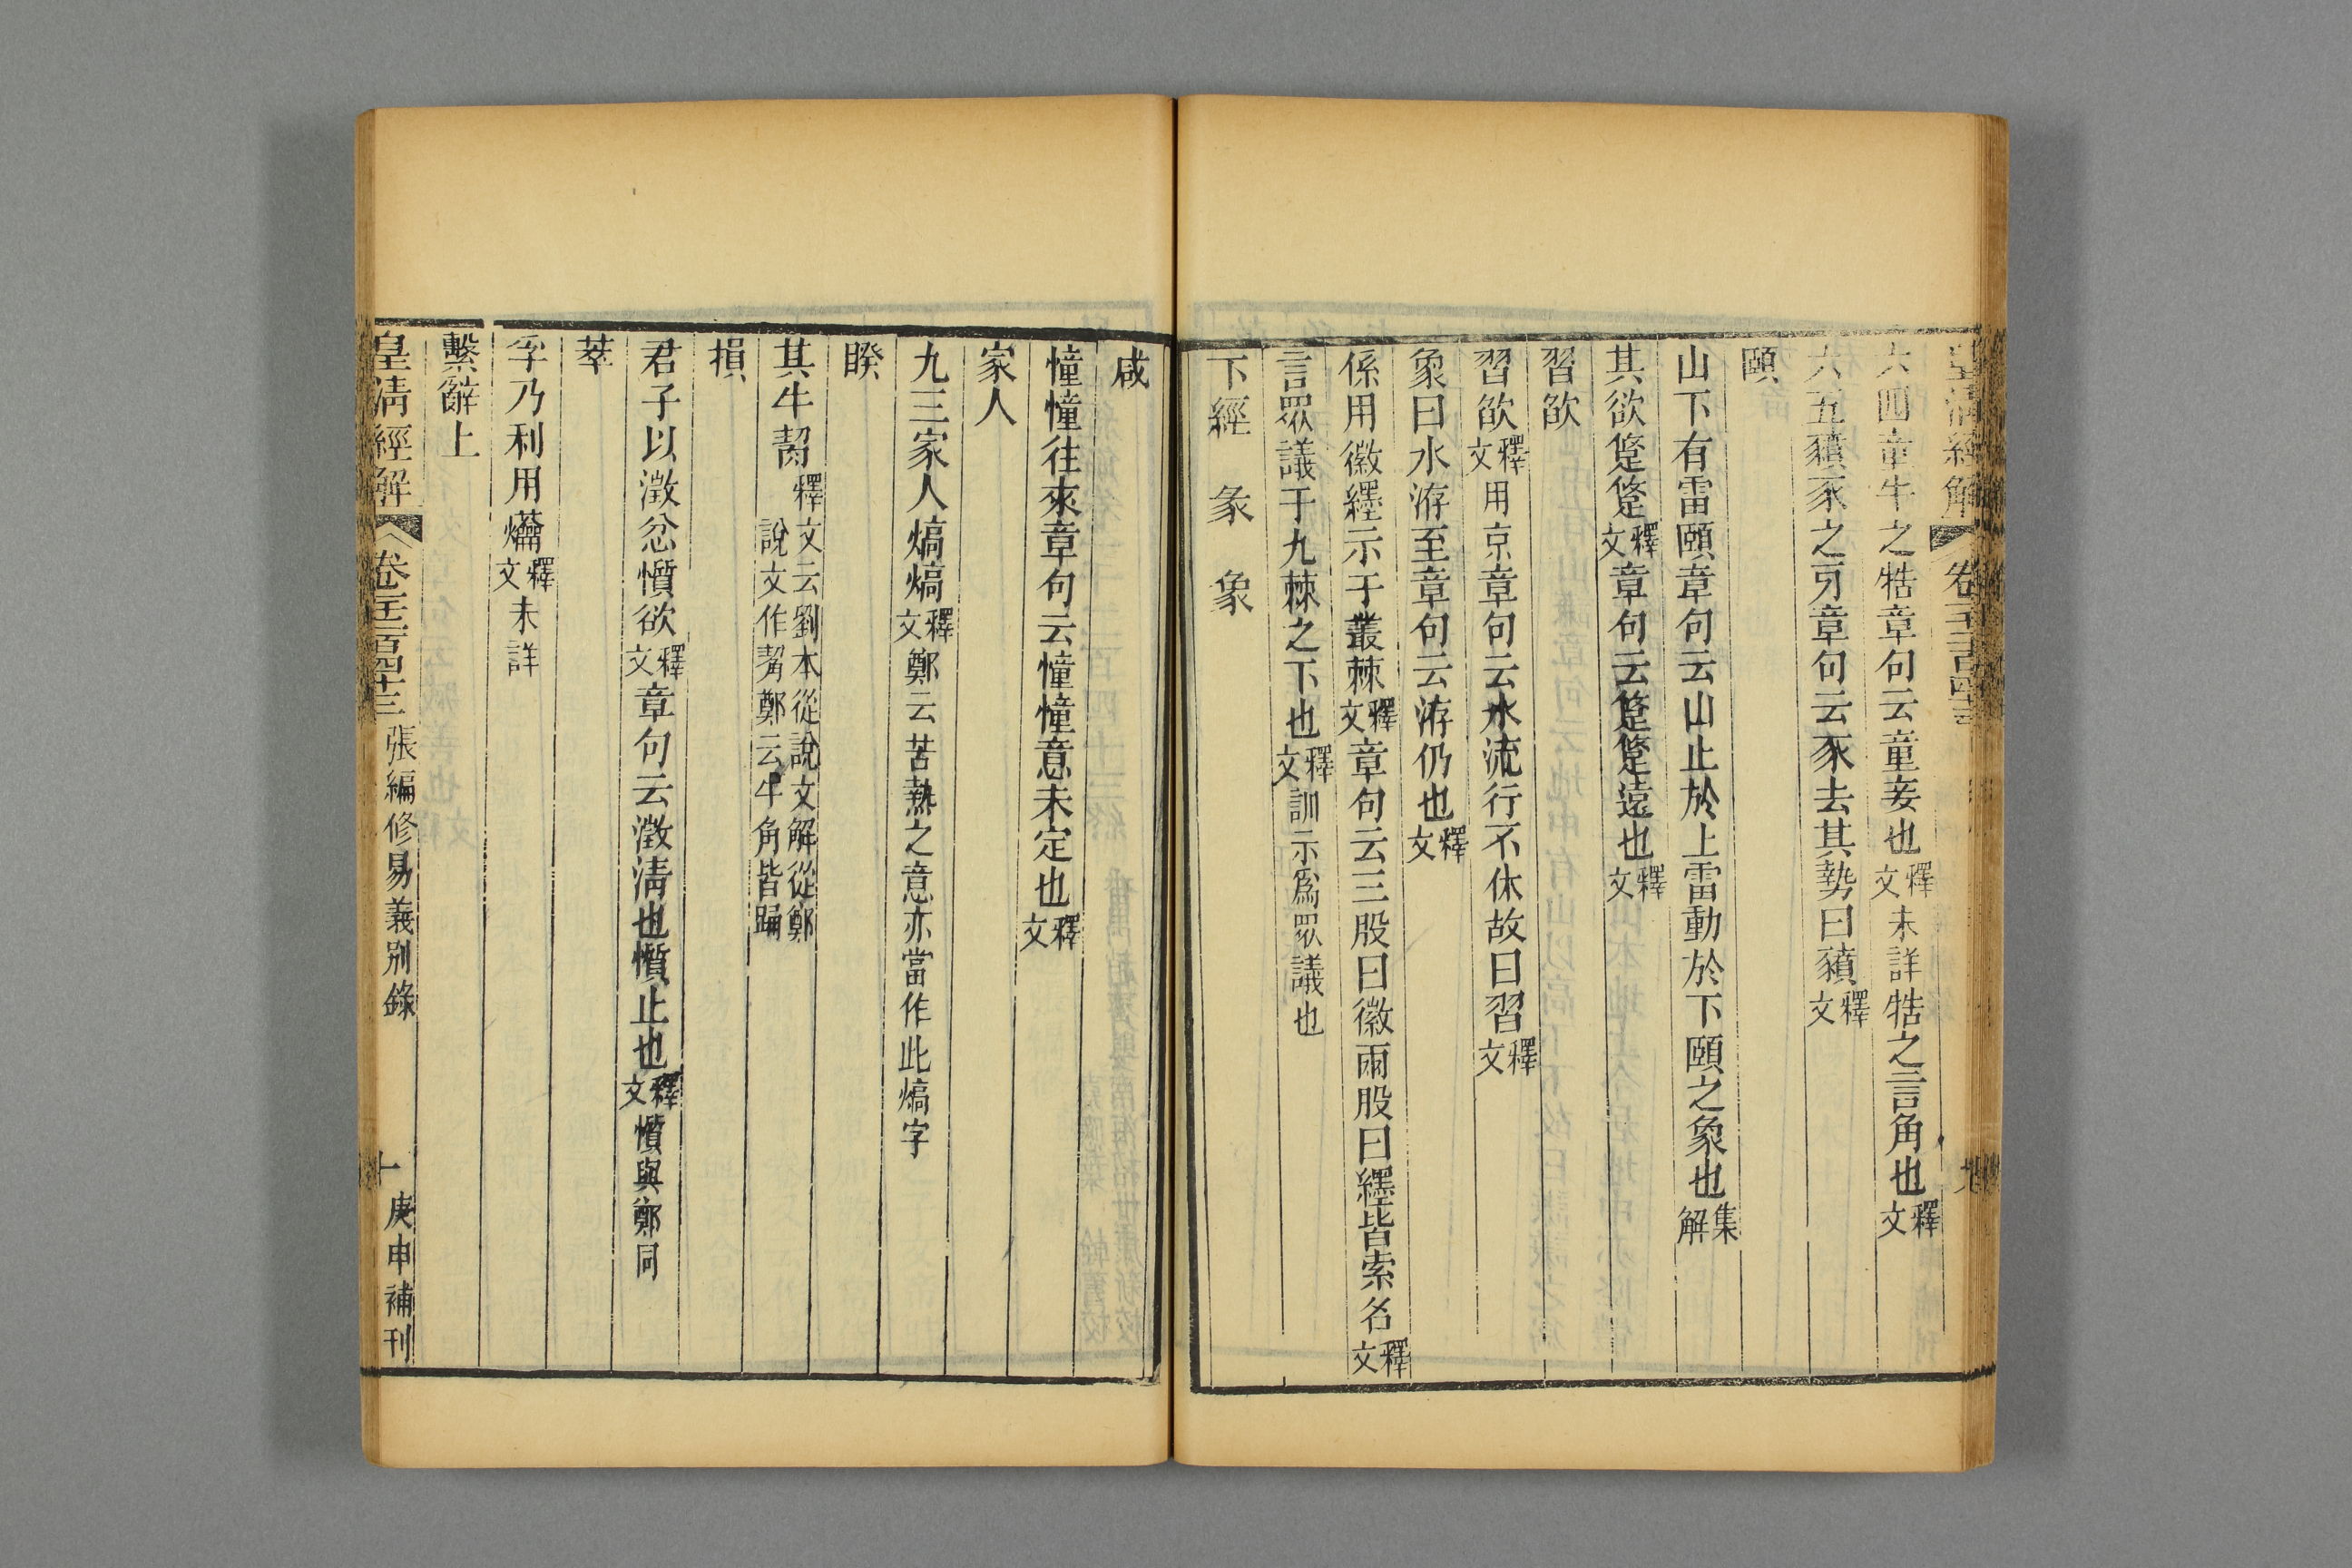 皇清經解 卷
六四童牛之牿章句云童妾也釋文未詳牿之言角也釋文
六五豶豕之牙章句云豕去其勢曰豶釋文
頤
山下有雷頤章句云山止於上雷動於下頤之象也集解
其欲跾跾釋文章句云跾跾遠也釋文
習欿
習欿釋文用京章句云水流行不休故曰習釋文
象曰水洊至章句云洊仍也釋文
係用徽纆示于叢棘釋文章句云三股曰徽兩股曰纆皆索名釋文
言眾議于九棘之下也釋文訓示爲眾議也
下經 彖 象
咸
憧憧往來章句云憧憧意未定也釋文
家人
九三家人熇熇釋文鄭云苦熱之意亦當作此熇字
睽
其牛挈釋文云劉本從說文解從鄭說文作觢鄭云牛角皆踊
損
君子以澂忿懫欲釋文章句云澂清也懫止也釋文懫與鄭同
萃
孚乃利用爚釋文未詳
繫辭上
皇清經解 卷一千二百四十三 張編修易義別錄 十 庚申補刊